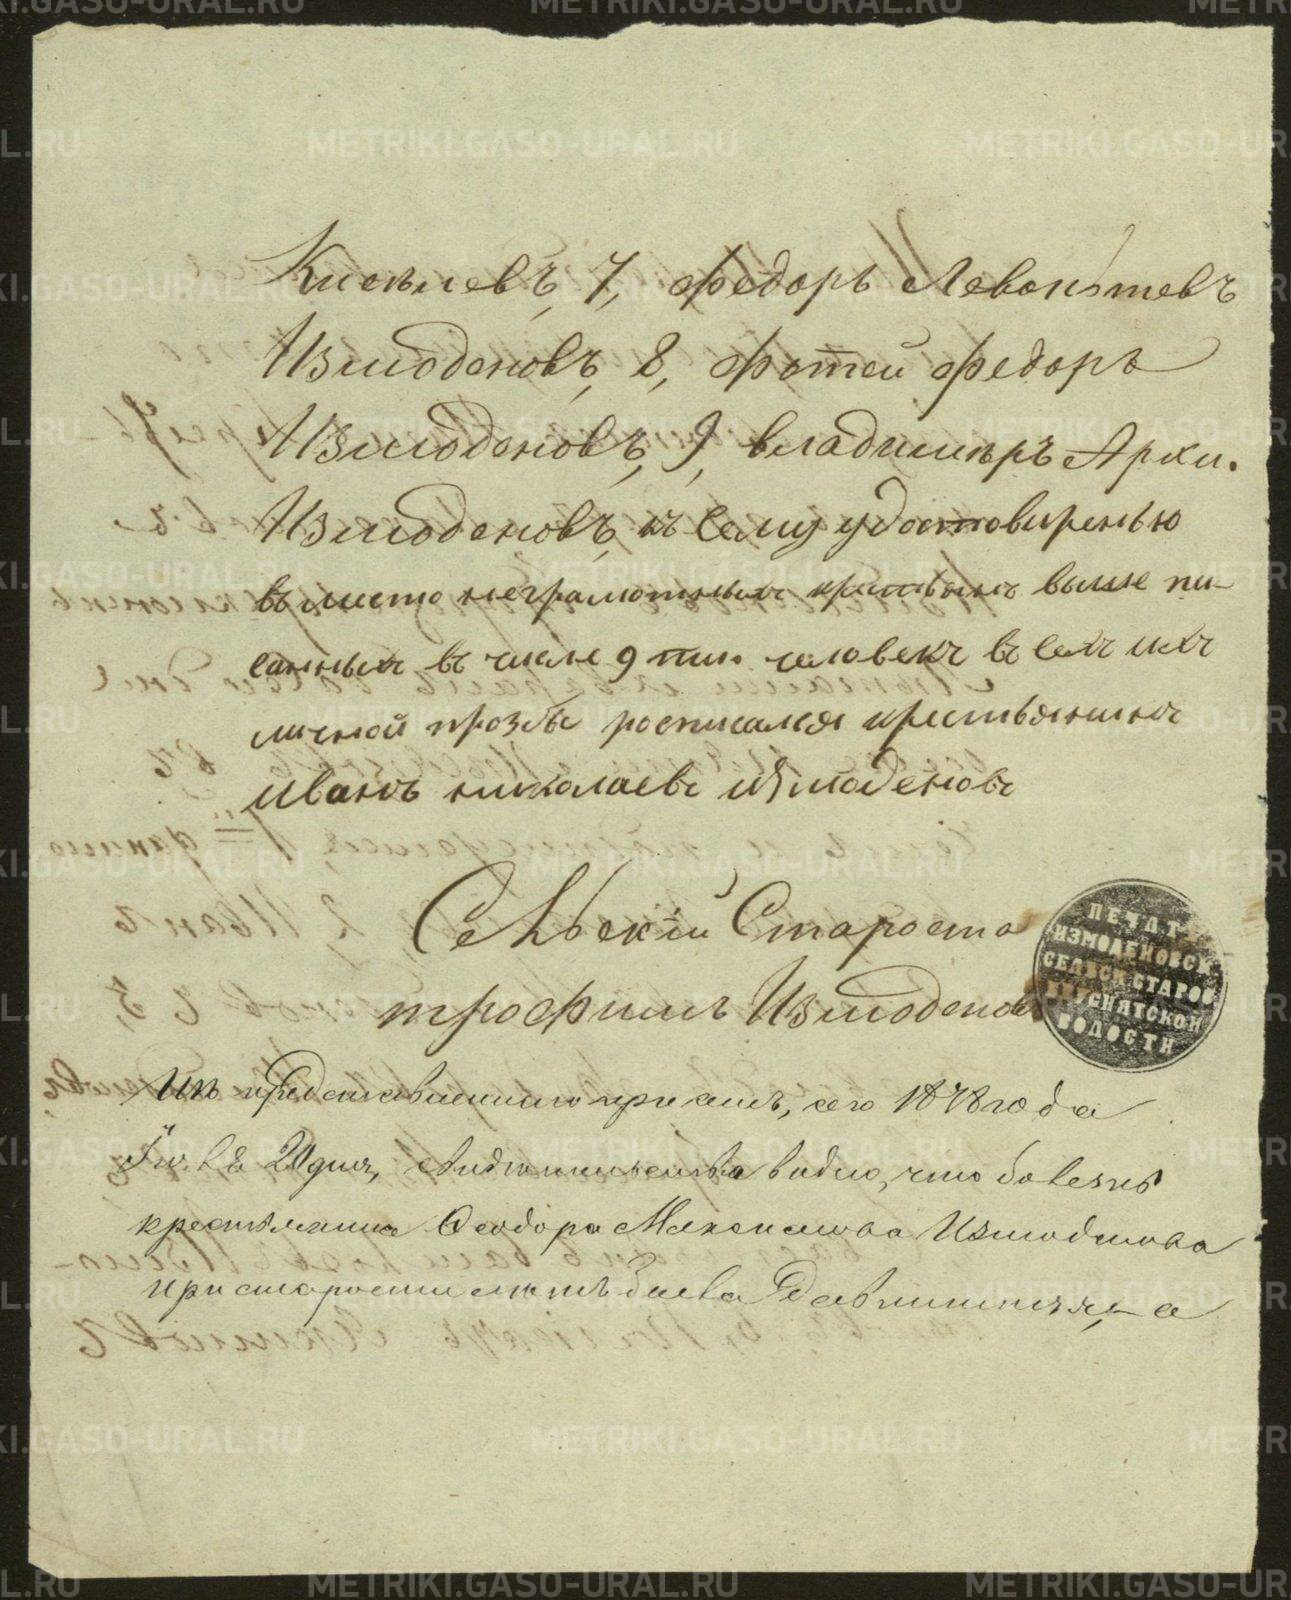 Кисѣлевъ, 7, федоръ Левонтьтевъ
Измоденовъ, 8, фотей федоръ
Измоденовъ, 9, владимѣръ Архи.
Измоденовъ, къ сему удостовиренью
въ место неграмотныхъ крестьянъ выше пи-
санныхъ въ числе 9 тии человекъ въ сехъ ихъ
личной прозбе росписался крестьянинъ
Иванъ николаевъ измоденовъ
Сельскій Староста
трофимъ Измоденовъ
ПЕЧАТ
ИЗМОДЕНОВСК
СЕЛЬСК СТАРОС
ВОЛОСТИ
Изъ представленнаго при семъ, сего 1878 года
20 дня, свидѣтельства видно, что болезнь
крестьянина Ѳеодора Максимова Измоденова
METRIKI.GASO-URAL.RU